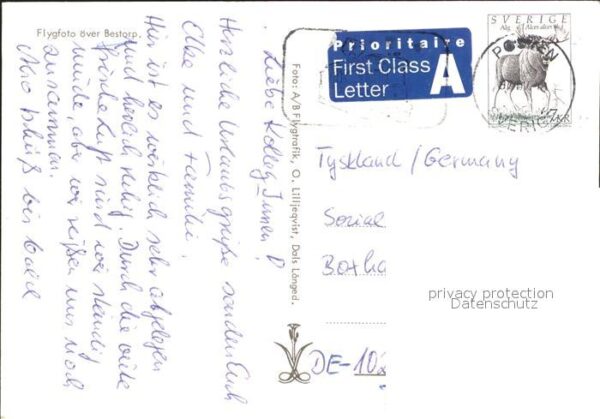 Flygfoto över Bestorp.
Liebe Kolleg Innen!
Herzliche Urlaubsgrüße senden Euch
Elke und Familie.
Hier ist es wirklich sehr abgelegen
und herrlich ruhig. Durch die viele
frische Luft sind wir ständig
müde, aber wir reißen uns noch
zusammen.
Also tschüß bis bald
Foto: A/B Flygtrafik, O. Lilljeqvist, Dals Långed.
Prioritaire
First Class
Letter
A
SVERIGE
Älg
Alces alces
POSTEN
SVERIGE
KR
Tyskland/Germany
Sozial
Boxha
DE-10
privacy protection
Datenschutz